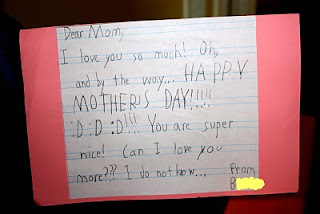 Dear Mom,
I love you so much! Oh,
and by the way... HAPPY
MOTHERS' DAY!!!!!
:D :D :D!!! You are super
nice! Can I love you
more??? I do not know...
From,
B